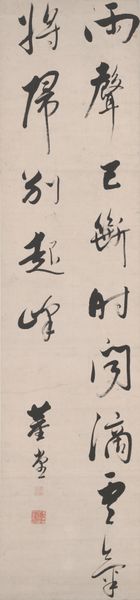 雨聲已斷时聞滴雲氣
將歸別起峰
董堂